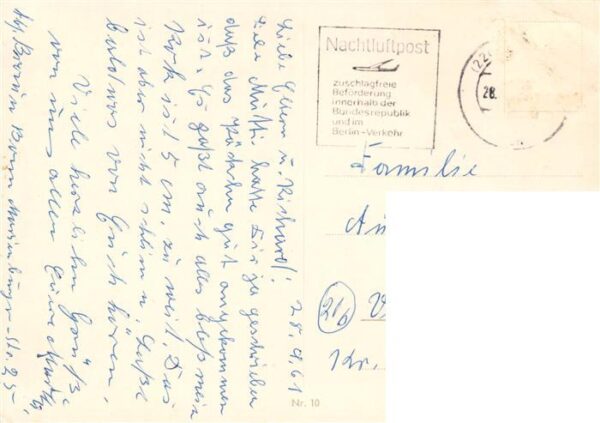 28.9.61
Liebe Eltern u. Richard!
Liebe Mutti hatte Dir ja geschrieben
daß das Päckchen gut angekommen
ist. Es paßt auch alles bloß mein
Rock ist 5 cm. zu weit. Das
ist aber nicht schlimm. Laßt
bald was von Euch hören.
Viele herzliche Grüße
von uns allen Eure
Bonn -Str. 25
Nachtluftpost
zuschlagfreie
Beförderung
innerhalb der
Bundesrepublik
und im
Berlin-Verkehr
(22
28.
Familie
(21b)
Kr.
Nr. 10